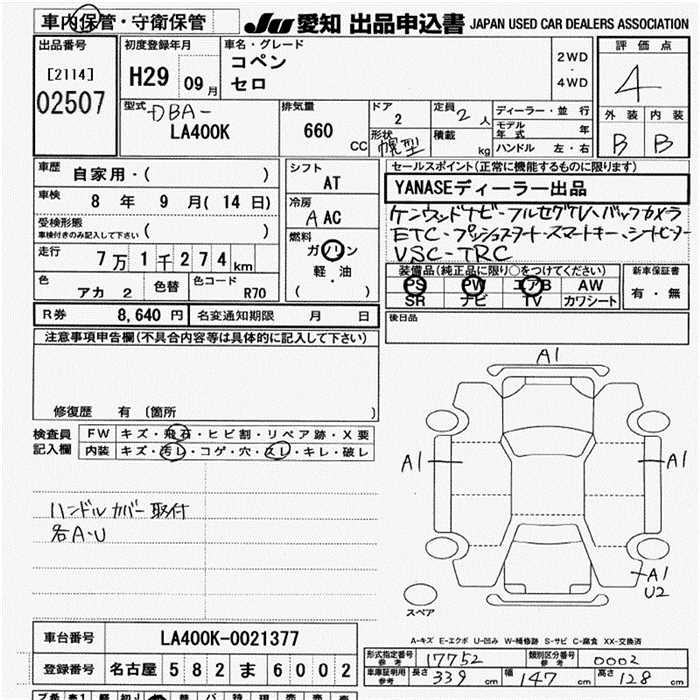 車内保管・守衛保管
JU 愛知 出品申込書 JAPAN USED CAR DEALERS ASSOCIATION
出品番号
[2114]
02507
初度登録年月
H29 09月
車名・グレード
コペン
セロ
2WD
・
4WD
評価点
4
外装 内装
B B
型式
DBA-
LA400K
排気量
660 CC
ドア
2
形状
幌型
定員
2人
積載
kg
ディーラー・並行
モデル年式 年
ハンドル 左・右
車歴
自家用・( )
車検
8年 9月(14日)
受検形態
車検付きのみ記入して下さい ( )
走行
7万1千274km
色
アカ 2
色替
色コード
R70
シフト
AT
冷房
A AC
燃料
ガソリン
軽・油
( )
セールスポイント(正常に機能するものに限ります)
YANASEディーラー出品
ケンウッドナビ・フルセグTV、バックカメラ
ETC・プッシュスタート・スマートキー、シートヒーター
VSC・TRC
装備品(純正品に限り○をつけてください)
PS PW エアB AW
SR ナビ TV カワシート
新車保証書
有・無
R券 8,640円
名変通知期限 月 日
後日品
注意事項申告欄(不具合内容等は具体的に記入して下さい)
修復歴 有 (箇所 )
検査員
記入欄
FW キズ・飛石・ヒビ割・リペア跡・X要
内装 キズ・汚レ・コゲ・穴・スレ・キレ・破レ
ハンドルカバー取付
各A・U
A1
A1
A1
A1
U2
スペア
A-キズ E-エクボ U-凹み W-補修跡 S-サビ C-腐食 XX-交換済
車台番号 LA400K-0021377
登録番号 名古屋 582 ま 6002
形式指定番号
参考
17752
類別区分番号
参考
0002
車庫証明用
参考
長さ 339cm 幅 147cm 高さ 128cm